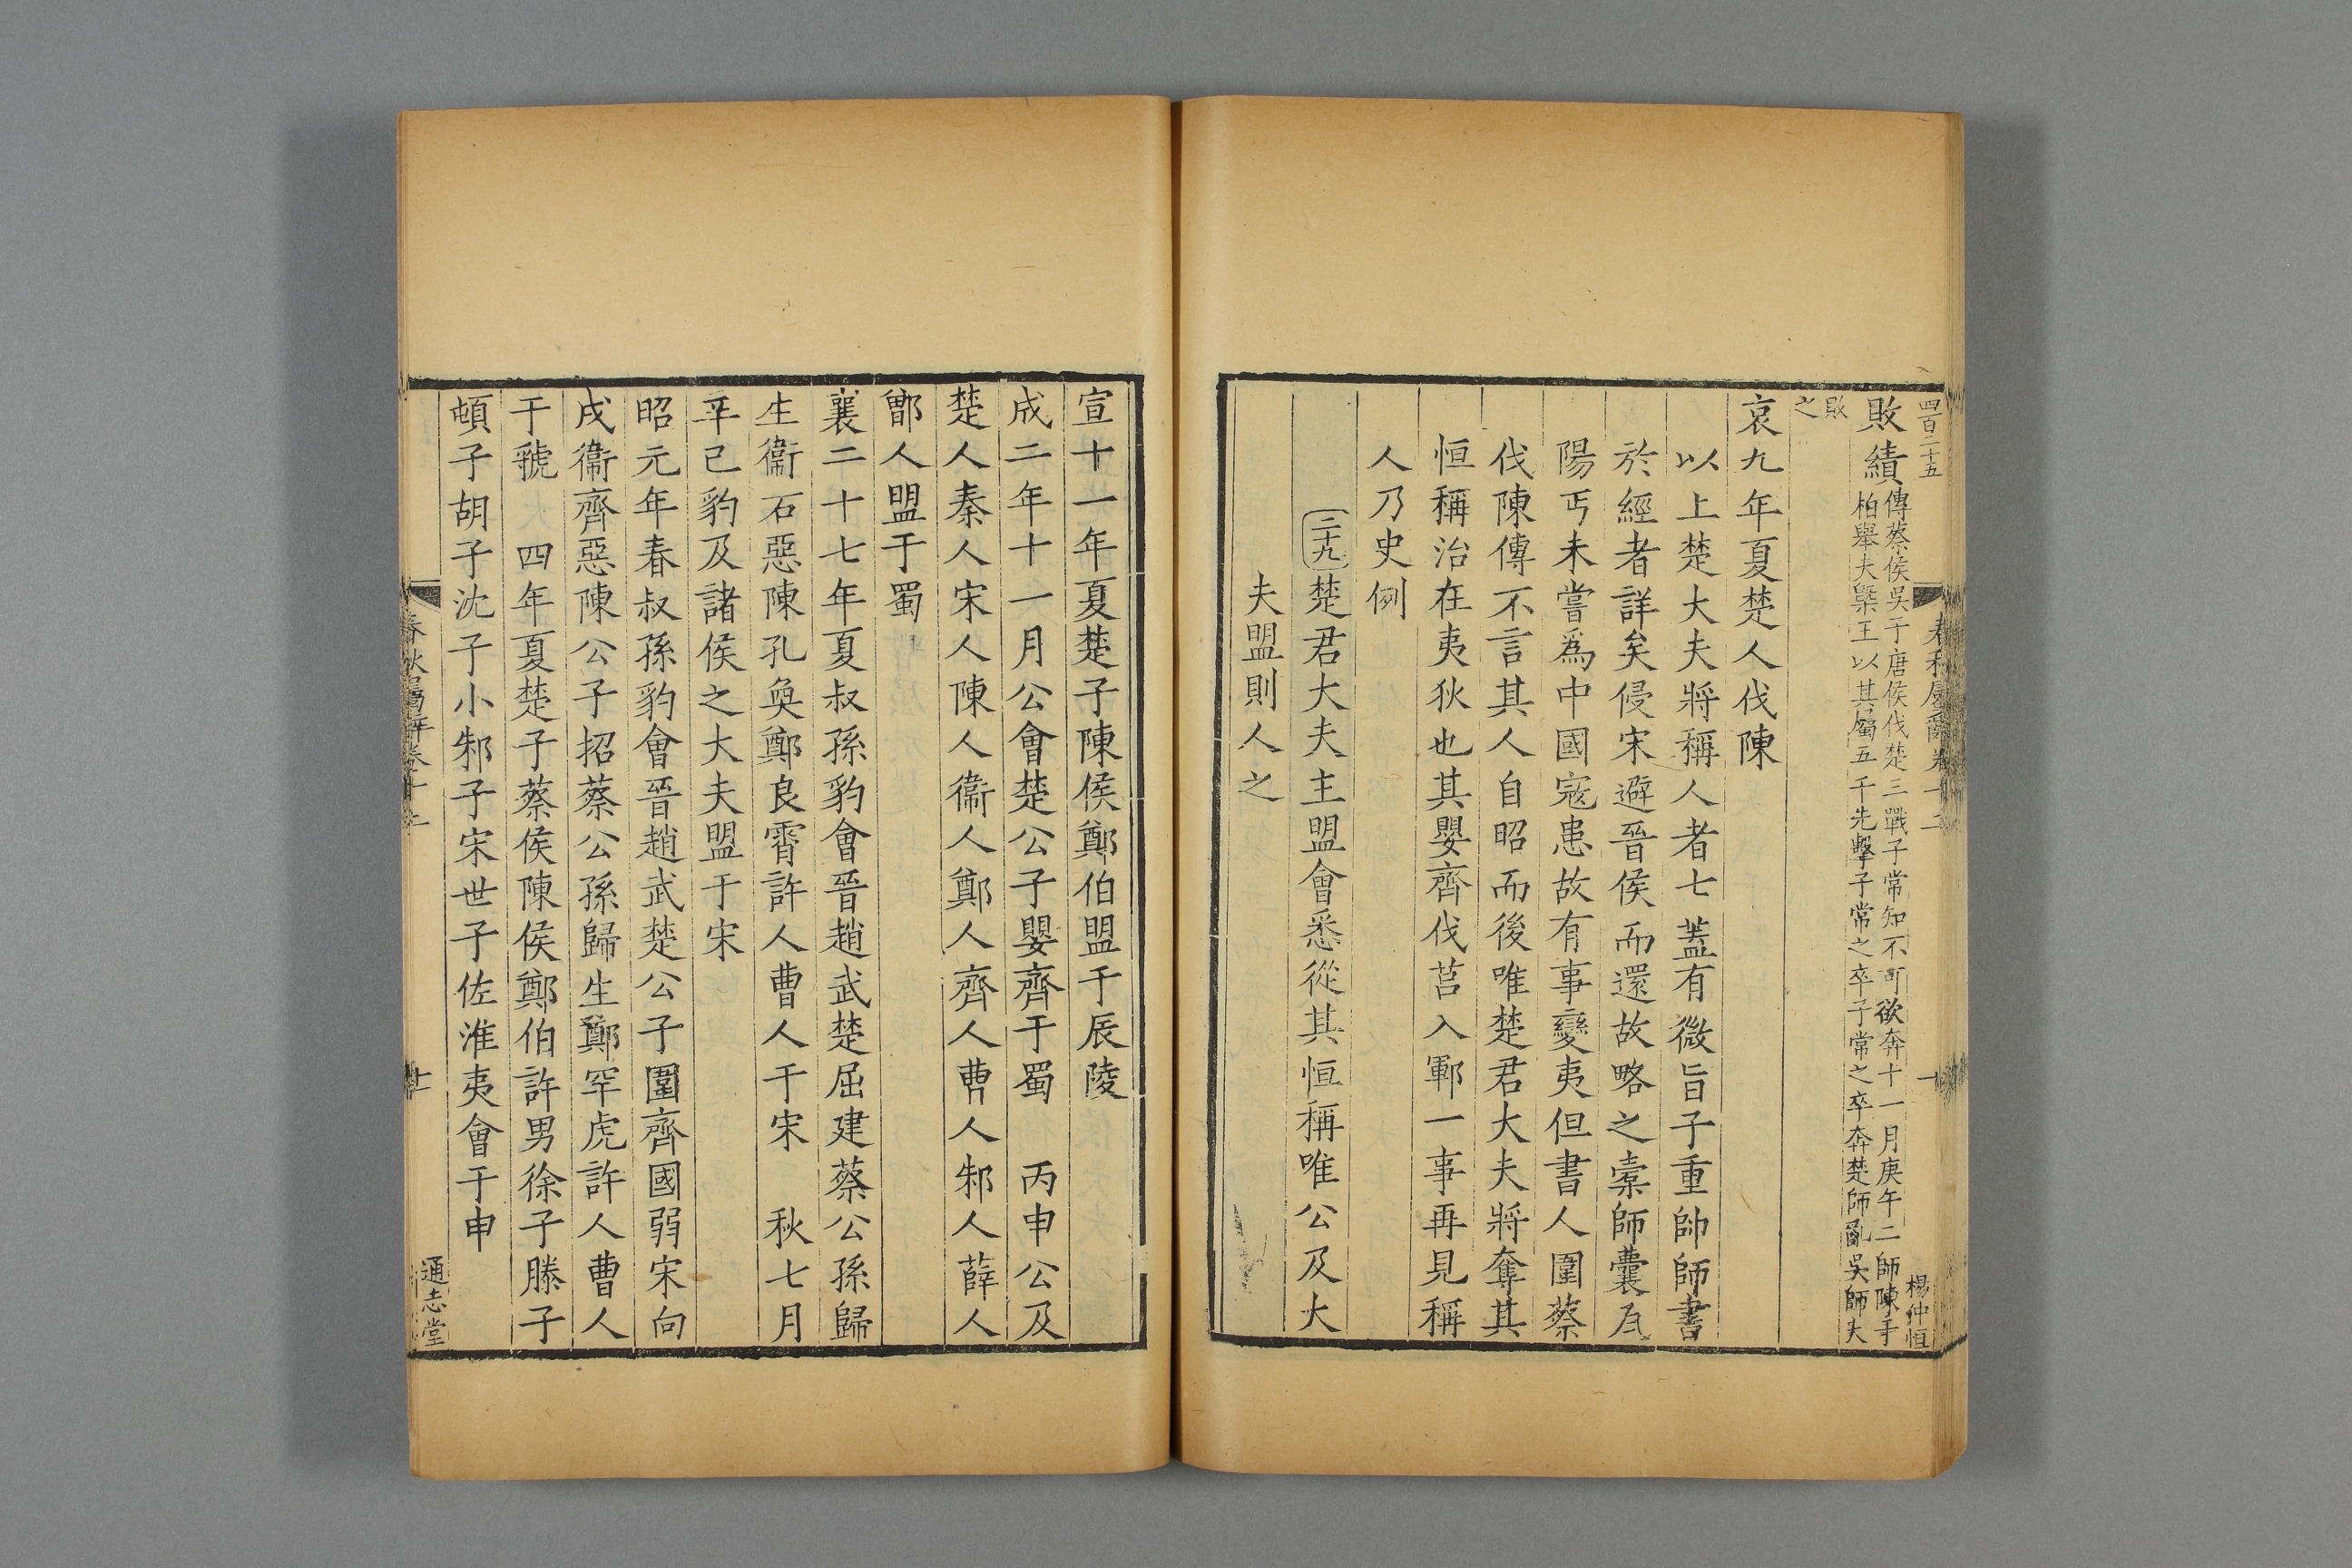 四百二十五
敗績傳蔡侯吳子唐侯伐楚三戰子常知不可欲奔十一月庚午二師陳于
柏舉夫槩王以其屬五千先擊子常之卒子常之卒奔楚師亂吳師大
敗
之
哀九年夏楚人伐陳
以上楚大夫將稱人者七蓋有微旨子重帥師書
於經者詳矣侵宋避晉侯而還故略之槖師囊瓦
陽丐未嘗爲中國寇患故有事變夷但書人圍蔡
伐陳傳不言其人自昭而後唯楚君大夫將奪其
恒稱治在夷狄也其嬰齊伐莒入鄆一事再見稱
人乃史例
二十九楚君大夫主盟會悉從其恒稱唯公及大
夫盟則人之
楊仲恒
宣十一年夏楚子陳侯鄭伯盟于辰陵
成二年十一月公會楚公子嬰齊于蜀　丙申公及
楚人秦人宋人陳人衞人鄭人齊人曹人邾人薛人
鄫人盟于蜀
襄二十七年夏叔孫豹會晉趙武楚屈建蔡公孫歸
生衞石惡陳孔奐鄭良霄許人曹人于宋　秋七月
辛巳豹及諸侯之大夫盟于宋
昭元年春叔孫豹會晉趙武楚公子圍齊國弱宋向
戌衞齊惡陳公子招蔡公孫歸生鄭罕虎許人曹人
于虢　四年夏楚子蔡侯陳侯鄭伯許男徐子滕子
頓子胡子沈子小邾子宋世子佐淮夷會于申
春秋屬辭卷十二
通志堂